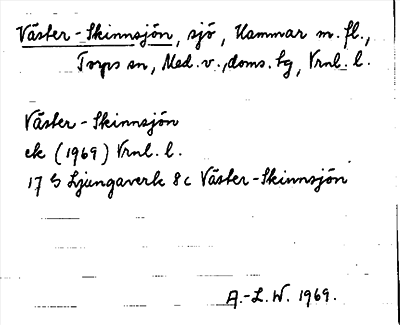 Väster-Skinnsjön, sjö, Hammar m. fl.,
Torps sn, Med. v., doms. tg, Vrnl. l.
Väster-Skinnsjön
ek (1969) Vrnl. l.
17 G Ljungaverk 8c Väster-Skinnsjön
A.-L. W. 1969.